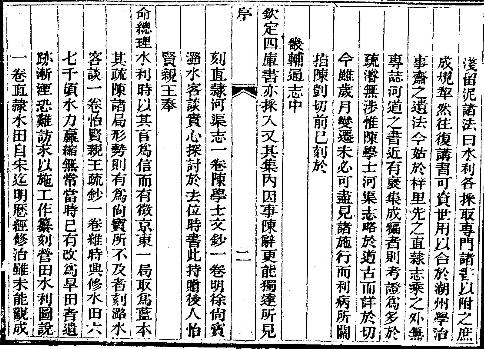 淺留淤諸法曰水利各採取專門諸書以附之庶
成規犖然往復講習可資世用以合於湖州學治
事齋之遺法今始於桑里先之直隸志乘之外無
專誌河道之書近有裒集成編者則考證為多於
疏濬無涉惟陳學士河渠志略於道古而詳於切
今雖歲月變遷未必可盡見諸施行而利病所關
指陳剴切前已刻於
畿輔通志中
欽定四庫書亦採入又其集內因事陳辭更能獨達所見
序
二
刻直隸河渠志一卷陳學士文鈔一卷明徐尚寶
潞水客談實心探討於去位時書此持贈後人怡
賢親王奉
命總理水利時以其言為信而有徵京東一局取為藍本
其疏陳諸局形勢則有為尚寶所不及者刻潞水
客談一卷怡賢親王疏鈔一卷維時興修水田六
七千頃水力贏縮無常當時已有改為旱田者遺
跡漸湮恐難訪求以施工作纂刻營田水利圖說
一卷直隸水田自宋迄明歷經修治雖未能觀成